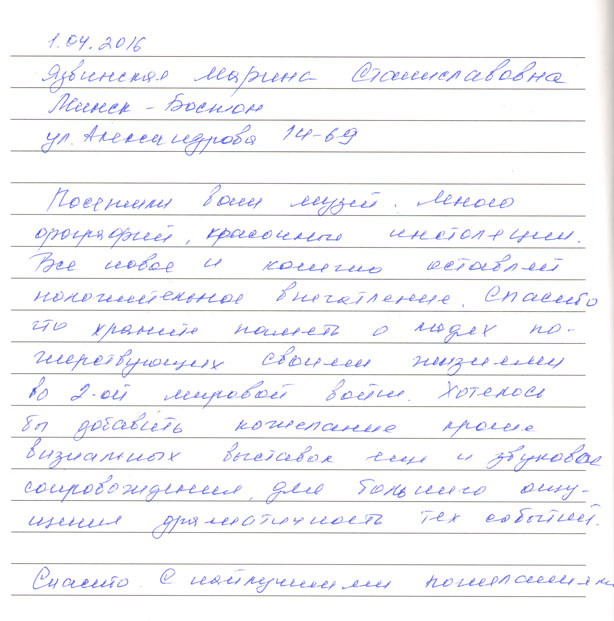 1.04.2016
Язвинская Марина Станиславовна
Минск - Бостон
ул. Александрова 14-69
Посетили ваш музей. Много
фотографий, красочные инстоляции.
Все новое и конечно оставляет
положительное впечатление. Спасибо
что храните память о людях по-
жертвующих своими жизнями
во 2-ой мировой войне. Хотелось
бы добавить пожелание кроме
визиалных выставок еще и звуковое
сопровождения, для большего ощу-
щения драматичность тех событий.
Спасибо. С наилучшими пожеланиями